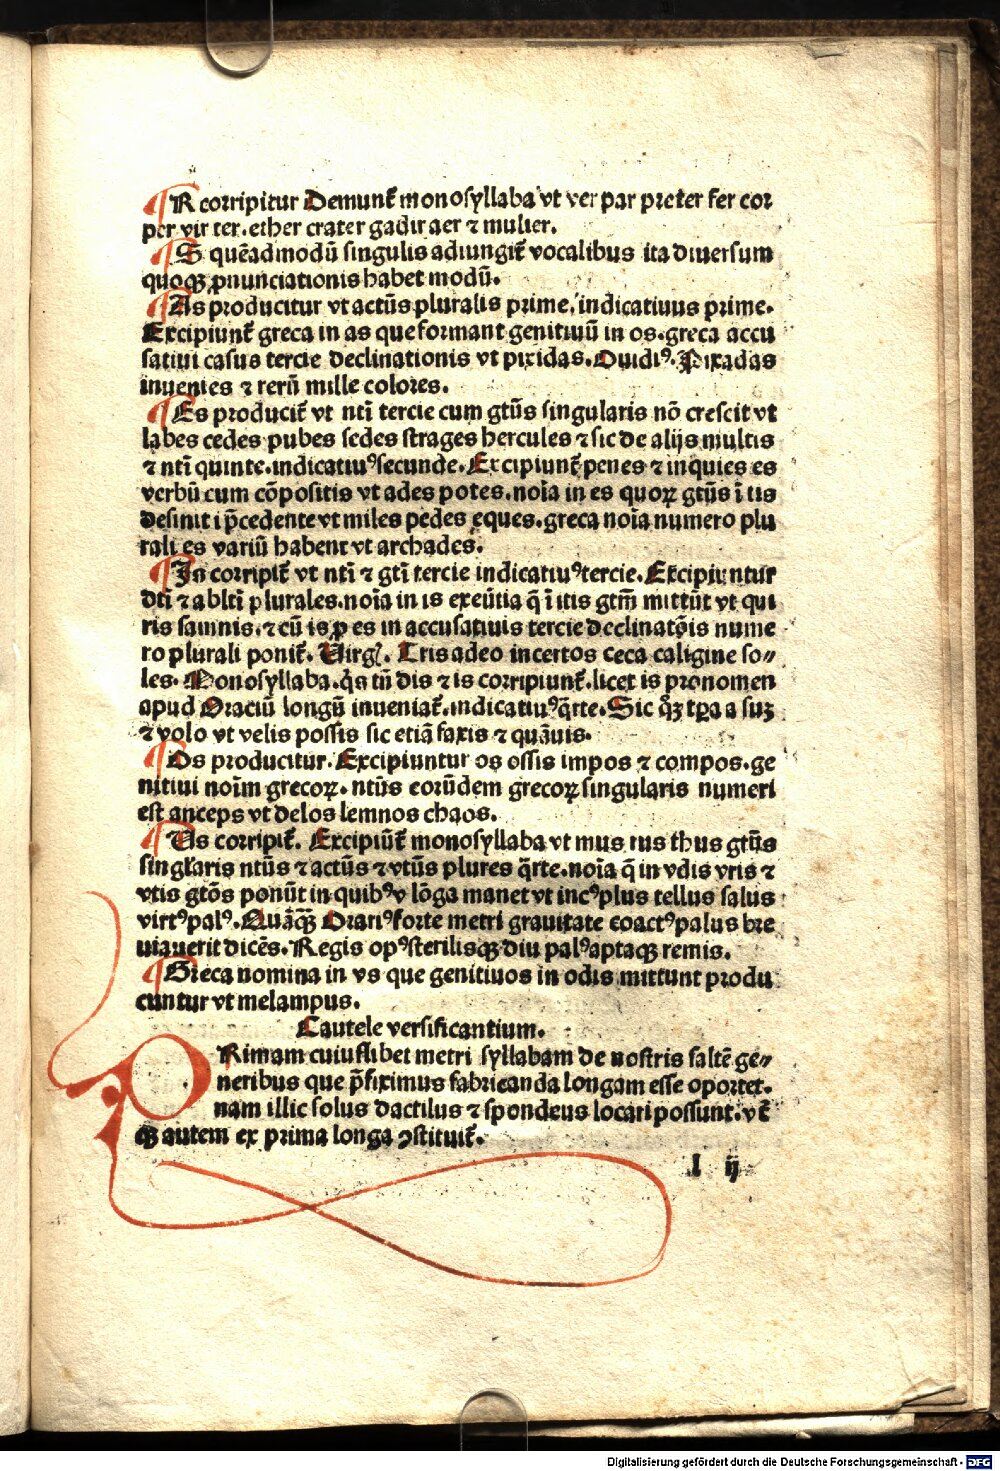 R corripitur Demunt̄ monosyllaba vt ver par preter fer cor
per vir ter. ether crater gadir aer ⁊ mulier.
S quēadmodū singulis adiungit̄ vocalibus ita diuersum
quoqꝫ ꝓnunciationis habet modū.
As producitur vt actūs pluralis prime, indicatiuus prime.
Excipiunt̄ greca in as que formant genitiuū in os. greca accu
satiui casus tercie declinationis vt pixidas. Ouidiꝰ. Pixadas
inuenies ⁊ rerū mille colores.
Es producit̄ vt nt̄i tercie cum gt̄us singularis nō crescit vt
labes cedes pubes sedes strages hercules ⁊ sic de alijs multis
⁊ nt̄i quinte. indicatiuꝰ secunde. Excipiunt̄ penes ⁊ inquies es
verbū cum cōpositis vt ades potes. noīa in es quoꝝ gt̄us ī tis
desinit i p̄cedente vt miles pedes eques. greca noīa numero plu
rali es variū habent vt archades.
In corripit̄ vt nt̄i ⁊ gt̄i tercie indicatiuꝰ tercie. Excipiuntur
dt̄i ⁊ ablt̄i plurales. noīa in is exeūtia q̄ ī itis gt̄m mittūt vt qui
ris samnis. ⁊ cū is ꝓ es in accusatiuis tercie declinatōis nume
ro plurali ponit̄. Virgl̓. Tris adeo incertos ceca caligine so⸗
les. Monosyllaba. q̄s tn̄ dis ⁊ is corripiunt̄. licet is pronomen
apud Oraciū longū inueniat̄. indicatiuꝰ q̄rte. Sic qꝫ tp̄a a suꝫ
⁊ volo vt velis possis sic etiā faxis ⁊ quāuis.
Os producitur. Excipiuntur os ossis impos ⁊ compos. ge
nitiui noīm grecoꝝ. nt̄us eorūdem grecoꝝ singularis numeri
est anceps vt delos lemnos chaos.
Us corripit̄. Excipiūt̄ monosyllaba vt mus rus thus gt̄us
singl̓aris nt̄us ⁊ actūs ⁊ vt̄us plures q̄rte. noīa q̄ in vdis vris ⁊
vtis gt̄os ponūt in quibꝰ v lōga manet vt incꝰ plus tellus salus
virtꝰ palꝰ. Quāqꝫ Oratiꝰ forte metri grauitate coactꝰ palus bre
uiauerit dicēs. Regis opꝰ sterilisqꝫ diu palꝰ aptaqꝫ remis.
Greca nomina in vs que genitiuos in odis mittunt produ
cuntur vt melampus.
Cautele versificantium.
PRimam cuiuslibet metri syllabam de nostris saltē ge⸗
neribus que p̄fiximus fabricanda longam esse oportet.
nam illic solus dactilus ⁊ spondeus locari possunt. vt̄
qꝫ autem ex prima longa ꝯstituit̄.
l ij
Digitalisierung gefördert durch die Deutsche Forschungsgemeinschaft - DFG